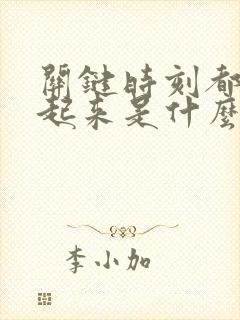 關鍵時刻都
起来是什麼
李小加